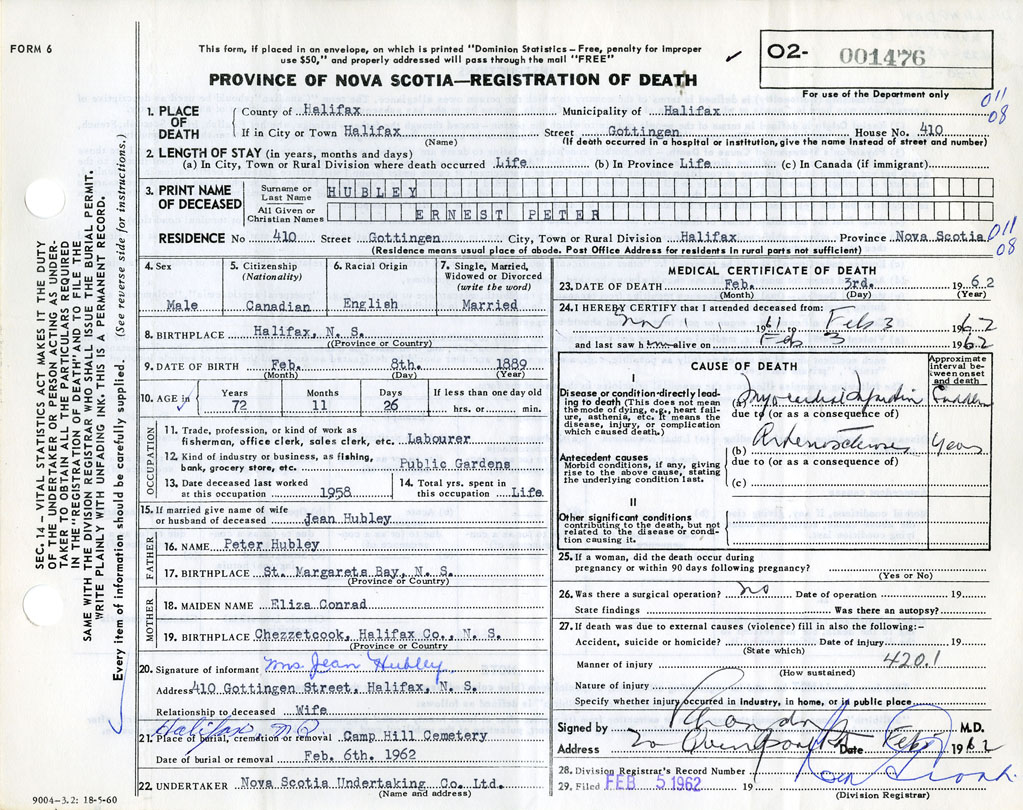 FORM 6
This form, if placed in an envelope, on which is printed "Dominion Statistics – Free, penalty for improper
use $50," and properly addressed will pass through the mail "FREE"
PROVINCE OF NOVA SCOTIA—REGISTRATION OF DEATH
O2- 001476
For use of the Department only
011
08
SEC. 14 – VITAL STATISTICS ACT MAKES IT THE DUTY
OF THE UNDERTAKER OR PERSON ACTING AS UNDER-
TAKER TO OBTAIN ALL THE PARTICULARS REQUIRED
IN THE "REGISTRATION OF DEATH" AND TO FILE THE
SAME WITH THE DIVISION REGISTRAR WHO SHALL ISSUE THE BURIAL PERMIT.
WRITE PLAINLY WITH UNFADING INK. THIS IS A PERMANENT RECORD.
Every item of information should be carefully supplied. (See reverse side for instructions.)
1. PLACE OF DEATH
County of Halifax Municipality of Halifax
If in City or Town Halifax Street Gottingen House No. 410
(Name) (If death occurred in a hospital or institution, give the name instead of street and number)
2. LENGTH OF STAY (in years, months and days)
(a) In City, Town or Rural Division where death occurred Life (b) In Province Life (c) In Canada (if immigrant)
3. PRINT NAME OF DECEASED
Surname or Last Name HUBLEY
All Given or Christian Names ERNEST PETER
RESIDENCE No 410 Street Gottingen City, Town or Rural Division Halifax Province Nova Scotia
011
08
(Residence means usual place of abode. Post Office Address for residents in rural parts not sufficient)
4. Sex Male
5. Citizenship (Nationality) Canadian
6. Racial Origin English
7. Single, Married, Widowed or Divorced (write the word) Married
8. BIRTHPLACE Halifax, N. S.
(Province or Country)
9. DATE OF BIRTH Feb. 8th. 1889
(Month) (Day) (Year)
10. AGE in Years 72 Months 11 Days 26 If less than one day old hrs. or min.
OCCUPATION
11. Trade, profession, or kind of work as
fisherman, office clerk, sales clerk, etc. Labourer
12. Kind of industry or business, as fishing,
bank, grocery store, etc. Public Gardens
13. Date deceased last worked
at this occupation 1958
14. Total yrs. spent in
this occupation Life
15. If married give name of wife
or husband of deceased Jean Hubley
FATHER
16. NAME Peter Hubley
17. BIRTHPLACE St. Margarets Bay, N. S.
(Province or Country)
MOTHER
18. MAIDEN NAME Eliza Conrad
19. BIRTHPLACE Chezzetcook, Halifax Co., N. S.
(Province or Country
20. Signature of informant Mrs Jean Hubley
Address 410 Gottingen Street, Halifax, N. S.
Relationship to deceased Wife
Halifax
21. Place of burial, cremation or removal Camp Hill Cemetery
Date of burial or removal Feb. 6th. 1962
22. UNDERTAKER Nova Scotia Undertaking Co. Ltd.
(Name and address)
9004-3.2: 18-5-60
MEDICAL CERTIFICATE OF DEATH
23. DATE OF DEATH Feb. 3rd. 1962
(Month) (Day) (Year)
24. I HEREBY CERTIFY that I attended deceased from:
Nov 1 1961 to Feb 3 1962
and last saw him alive on Feb 3 1962
CAUSE OF DEATH
Approximate interval between onset and death
I
Disease or condition directly lead-
ing to death (This does not mean
the mode of dying, e.g., heart fail-
ure, asthenia, etc. It means the
disease, injury, or complication
which caused death.)
(a) Myocardial Sudden
due to (or as a consequence of)
Antecedent causes
Morbid conditions, if any, giving
rise to the above cause, stating
the underlying condition last.
(b) Arteriosclerosis Years
due to (or as a consequence of)
(c)
II
Other significant conditions
contributing to the death, but not
related to the disease or condi-
tion causing it.
25. If a woman, did the death occur during
pregnancy or within 90 days following pregnancy?
(Yes or No)
26. Was there a surgical operation? no Date of operation 19
State findings Was there an autopsy?
27. If death was due to external causes (violence) fill in also the following:–
Accident, suicide or homicide? Date of injury 19
(State which)
Manner of injury 420.1
(How sustained)
Nature of injury
Specify whether injury occurred in industry, in home, or in public place
Signed by M.D.
Address 20 Date Feb 5 1962
28. Division Registrar's Record Number
29. Filed FEB 5 1962 19
(Division Registrar)